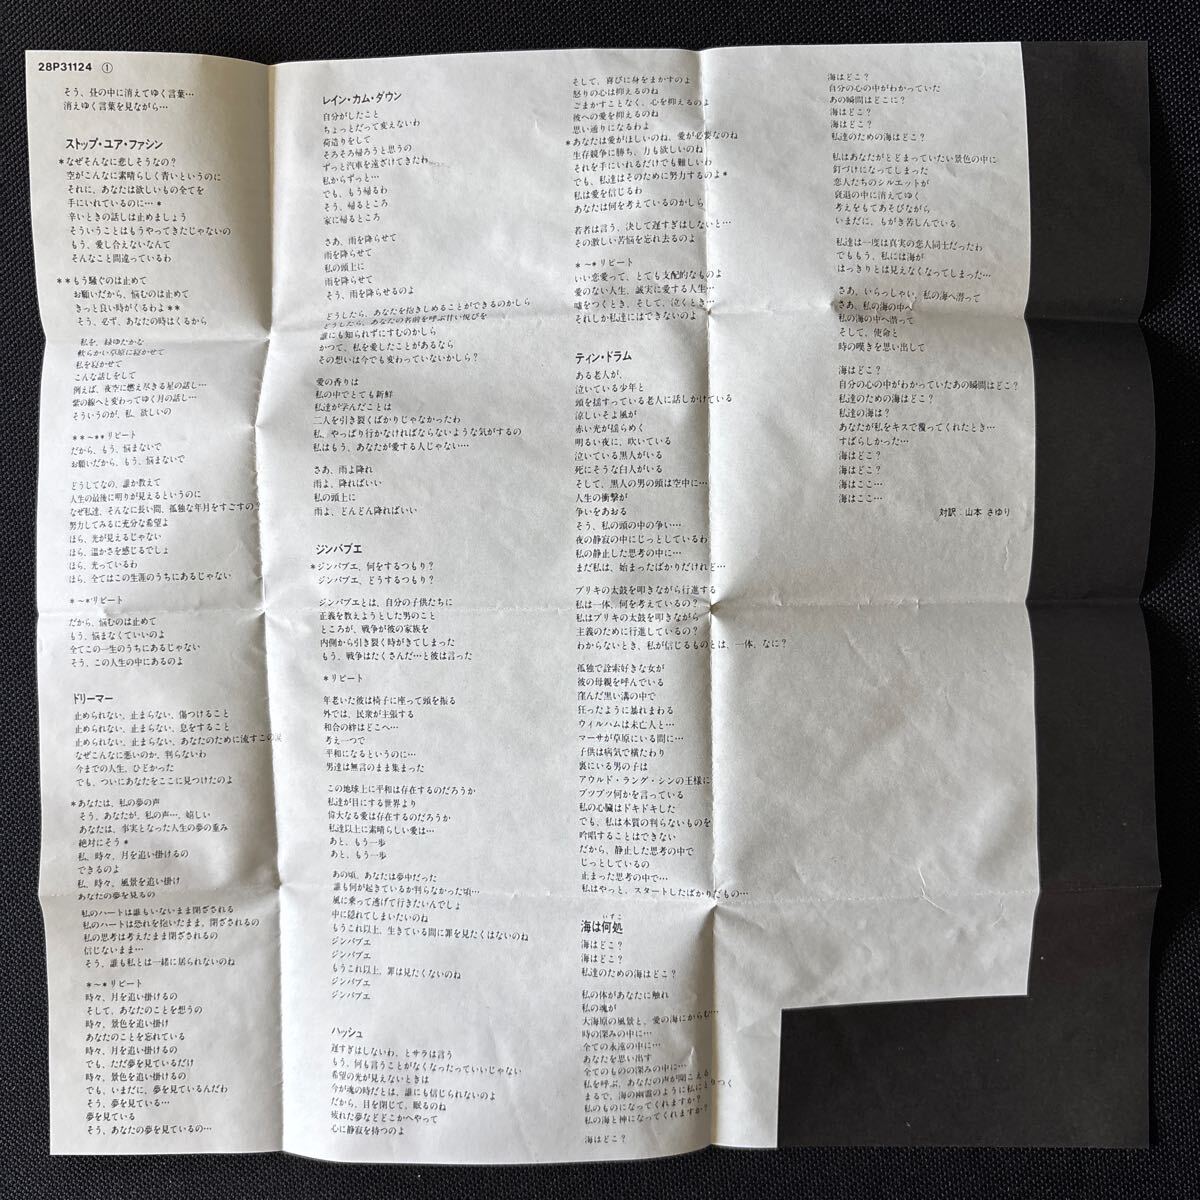 28P31124 ①
そう、昼の中に消えてゆく言葉…
消えゆく言葉を見ながら…
ストップ・ユア・ファシン
*なぜそんなに悲しそうなの？
空がこんなに素晴らしく青いというのに
それに、あなたは欲しいもの全てを
手にいれているのに…*
辛いときの話しは止めましょう
そういうことはもうやってきたじゃないの
もう、愛し合えないなんて
そんなこと間違っているわ
**もう騒ぐのは止めて
お願いだから、悩むのは止めて
きっと良い時がくるわよ**
そう、必ず、あなたの時はくるから
私を、緑ゆたかな
軟らかい草原に寝かせて
私を寝かせて
こんな話しをして
例えば、夜空に燃え尽きる星の話し…
紫の線へと変わってゆく月の話し…
そういうのが、私、欲しいの
**〜**リピート
だから、もう、悩まないで
お願いだから、もう、悩まないで
どうしてなの、誰か教えて
人生の最後に明りが見えるというのに
なぜ私達、そんなに長い間、孤独な年月をすごすの？
努力してみるに充分な希望よ
ほら、光が見えるじゃない
ほら、温かさを感じるでしょ
ほら、光っているわ
ほら、全てはこの生涯のうちにあるじゃない
*〜*リピート
だから、悩むのは止めて
もう、悩まなくていいのよ
全てこの一生のうちにあるじゃない
そう、この人生の中にあるのよ
ドリーマー
止められない、止まらない、傷つけること
止められない、止まらない、息をすること
止められない、止まらない、あなたのために流すこの涙
なぜこんなに悪いのか、判らないわ
今までの人生、ひどかった
でも、ついにあなたをここに見つけたのよ
*あなたは、私の夢の声
そう、あなたが、私の声…、嬉しい
あなたは、事実となった人生の夢の重み
絶対にそう*
私、時々、月を追い掛けるの
できるのよ
私、時々、風景を追い掛け
あなたの夢を見るの
私のハートは誰もいないまま閉ざされる
私のハートは恐れを抱いたまま、閉ざされるの
私の思考は考えたまま閉ざされるの
信じないまま…
そう、誰も私とは一緒に居られないのね
*〜*リピート
時々、月を追い掛けるの
そして、あなたのことを想うの
時々、景色を追い掛け
あなたのことを忘れている
時々、月を追い掛けるの
でも、ただ夢を見ているだけ
時々、景色を追い掛けるの
でも、いまだに、夢を見ているんだわ
そう、夢を見ている…
夢を見ている
そう、あなたの夢を見ているの…
レイン・カム・ダウン
自分がしたこと
ちょっとだって変えないわ
荷造りをして
そろそろ帰ろうと思うの
ずっと汽車を遠ざけてきたわ
私からずっと…
でも、もう帰るわ
そう、帰るところ
家に帰るところ
さあ、雨を降らせて
雨を降らせて
私の頭上に
雨を降らせて
そう、雨を降らせるのよ
どうしたら、あなたを抱きしめることができるのかしら
どうしたら、あなたの名前を呼ぶ甘い悦びを
誰にも知られずにすむのかしら
かつて、私を愛したことがあるなら
その想いは今でも変わっていないかしら？
愛の香りは
私の中でとても新鮮
私達が学んだことは
二人を引き裂くばかりじゃなかったわ
私、やっぱり行かなければならないような気がするの
私はもう、あなたが愛する人じゃない…
さあ、雨よ降れ
雨よ、降ればいい
私の頭上に
雨よ、どんどん降ればいい
ジンバブエ
*ジンバブエ、何をするつもり？
ジンバブエ、どうするつもり？
ジンバブエとは、自分の子供たちに
正義を教えようとした男のこと
ところが、戦争が彼の家族を
内側から引き裂く時がきてしまった
もう、戦争はたくさんだ…と彼は言った
*リピート
年老いた彼は椅子に座って頭を振る
外では、民衆が主張する
和合の絆はどこへ…
考え一つで
平和になるというのに…
男達は無言のまま集まった
この地球上に平和は存在するのだろうか
私達が目にする世界より
偉大なる愛は存在するのだろうか
私達以上に素晴らしい愛は…
あと、もう一歩
あと、もう一歩
あの頃、あなたは夢中だった
誰も何が起きているか判らなかった頃…
風に乗って逃げて行きたいんでしょ
中に隠れてしまいたいのね
もうこれ以上、生きている間に罪を見たくはないのね
ジンバブエ
ジンバブエ
もうこれ以上、罪は見たくないのね
ジンバブエ
ジンバブエ
ハッシュ
遅すぎはしないわ、とサラは言う
もう、何も言うことがなくなったっていいじゃない
希望の光が見えないときは
今が魂の時だとは、誰にも信じられないのよ
だから、目を閉じて、眠るのね
疲れた夢などどこかへやって
心に静寂を待つのよ
そして、喜びに身をまかすのよ
怒りの心は抑えるのね
ごまかすことなく、心を抑えるのよ
彼への愛を抑えるのね
思い通りになるわよ
*あなたは愛がほしいのね、愛が必要なのね
生存競争に勝ち、力も欲しいのね
それを手にいれるだけでも難しいわ
でも、私達はそのために努力するのよ*
私は愛を信じるわ
あなたは何を考えているのかしら
若者は言う、決して遅すぎはしないと…
その激しい苦悩を忘れ去るのよ
*〜*リピート
いい恋愛って、とても支配的なものよ
愛のない人生、誠実に愛する人生…
嘘をつくとき、そして、泣くとき…
それしか私達にはできないのよ
ティン・ドラム
ある老人が、
泣いている少年と
頭を揺すっている老人に話しかけている
涼しいそよ風が
赤い光が揺らめく
明るい夜に、吹いている
泣いている黒人がいる
死にそうな白人がいる
そして、黒人の男の頭は空中に…
人生の衝撃が
争いをあおる
そう、私の頭の中の争い…
夜の静寂の中にじっとしているわ
私の静止した思考の中に…
まだ私は、始まったばかりだけれど…
ブリキの太鼓を叩きながら行進する
私は一体、何を考えているの？
私はブリキの太鼓を叩きながら
主義のために行進しているの？
わからないとき、私が信じるものとは、一体、なに？
孤独で詮索好きな女が
彼の母親を呼んでいる
窪んだ黒い溝の中で
狂ったように暴れまわる
ウィルハムは未亡人と…
マーサが草原にいる間に…
子供は病気で横たわり
裏にいる男の子は
アウルド・ラング・シンの王様に
ブツブツ何かを言っている
私の心臓はドキドキした
でも、私は本質の判らないものを
吟唱することはできない
だから、静止した思考の中で
じっとしているの
止まった思考の中で…
私はやっと、スタートしたばかりだもの…
海は何処
いずこ
海はどこ？
海はどこ？
私達のための海はどこ？
私の体があなたに触れ
私の魂が
大海原の風景と、愛の海にからむ…
時の深みの中に…
全ての永遠の中に…
あなたを思い出す
全てのものの深みの中に…
私を呼ぶ、あなたの声が聞こえる
まるで、海の幽霊のように私にとりつく
私のものになってくれますか？
私の海と神になってくれますか？
海はどこ？
海はどこ？
自分の心の中がわかっていた
あの瞬間はどこに？
海はどこ？
海はどこ？
私達のための海はどこ？
私はあなたがとどまっていたい景色の中に
釘づけになってしまった
恋人たちのシルエットが
衰退の中に消えてゆく
考えをもてあそびながら
いまだに、もがき苦しんでいる
私達は一度は真実の恋人同士だったわ
でももう、私には海が
はっきりとは見えなくなってしまった…
さあ、いらっしゃい、私の海へ潜って
さあ、私の海の中へ
私の海の中へ潜って
そして、使命と
時の嘆きを思い出して
海はどこ？
自分の心の中がわかっていたあの瞬間はどこ？
私達のための海はどこ？
私達の海は？
あなたが私をキスで覆ってくれたとき…
すばらしかった…
海はどこ？
海はどこ？
海はここ…
海はここ…
対訳：山本 さゆり